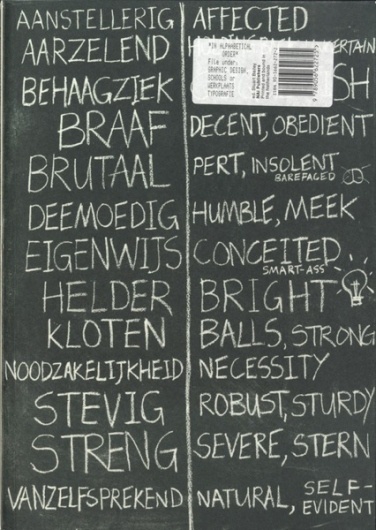 AANSTELLERIG AFFECTED
AARZELEND
BEHAAGZIEK SH
BRAAF DECENT, OBEDIENT
BRUTAAL PERT, INSOLENT
BAREFACED
DEEMOEDIG HUMBLE, MEEK
EIGENWIJS CONCEITED
SMART-ASS
HELDER BRIGHT
KLOTEN BALLS, STRONG
NOODZAKELIJKHEID NECESSITY
STEVIG ROBUST, STURDY
STRENG SEVERE, STERN
VANZELFSPREKEND NATURAL, SELF-
EVIDENT
"IN ALPHABETICAL
ORDER"
File under:
GRAPHIC DESIGN,
SCHOOLS or
WERKPLAATS
TYPOGRAFIE